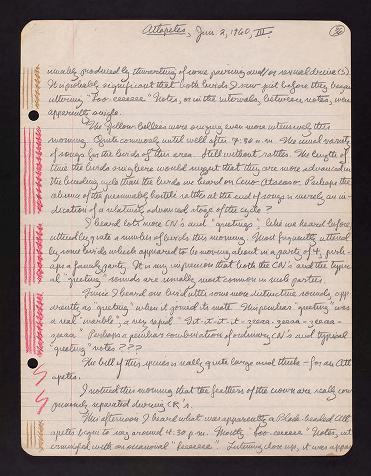 Atlapetes, Jan. 2, 1960, III.
36
usually produced by thwarting of some pairing and/or sexual drive(s).
It is probably significant that both birds I saw just before they began
uttering "Boo-eeeeee" Notes, or in the intervals between notes, were
apparently single.
The Yellow-bellies were singing even more intensively this
morning. Quite commonly until well after 7:30 a.m. The usual variety
of songs for the birds of this area. Still without rattles. The length of
time the birds sing here would suggest that they are more advanced in
the breeding cycle than the birds we heard on Cerro
Perhaps the
absence of the presumably hostile rattles at the end of songs is merely an in-
dication of a relatively advanced stage of the cycle?
I heard lots more CN's and "greetings", like we heard before,
uttered by quite a number of birds this morning. Most frequently uttered
by some birds which appeared to be moving about in a party of 4, perh-
aps a family party. It is my impression that both the CN's and the typic-
al "greeting" sounds are usually most common in such parties.
Twice I heard one bird utter some more distinctive sounds, app-
arently as "greeting" when it joined its mate. This peculiar "greeting" was
a real "warble", a very rapid "Tit-it-it-it-zeaaa-zeaaa-zeaaa-
zeaaa". Perhaps a peculiar combination of ordinary CN's and typical
"greeting" notes???
The bill of this species is really quite large and thick - for an Atl-
apetes.
I noticed this morning that the feathers of the crown are really con-
spicuously separated during CR's.
This afternoon I heard what was apparently a Black-headed Atl-
apetes sing
around 4:30 p.m. Mostly "Boo-eeeeee" Notes, int-
ermingled with an occasional "eeeeeee". Listening close up, it was appar-